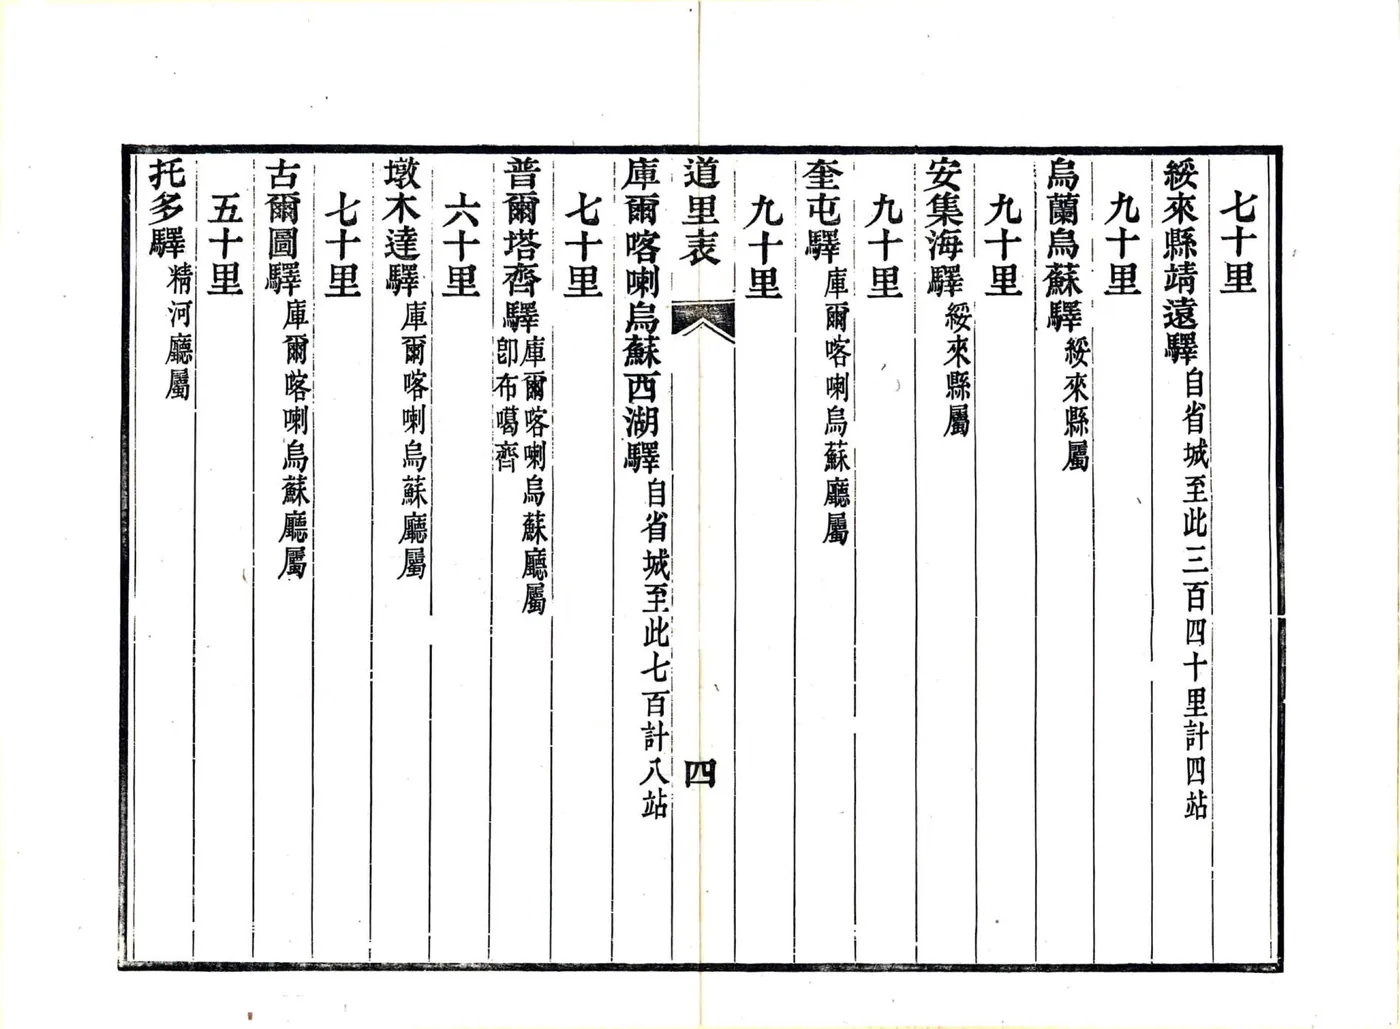 七十里
綏來縣靖遠驛自省城至此三百四十里計四站
九十里
烏蘭烏蘇驛綏來縣屬
九十里
安集海驛綏來縣屬
九十里
奎屯驛庫爾喀喇烏蘇廳屬
九十里
道里表 四
庫爾喀喇烏蘇西湖驛自省城至此七百計八站
七十里
普爾塔齊驛庫爾喀喇烏蘇廳屬
卽布噶齊
六十里
墩木達驛庫爾喀喇烏蘇廳屬
七十里
古爾圖驛庫爾喀喇烏蘇廳屬
五十里
托多驛精河廳屬